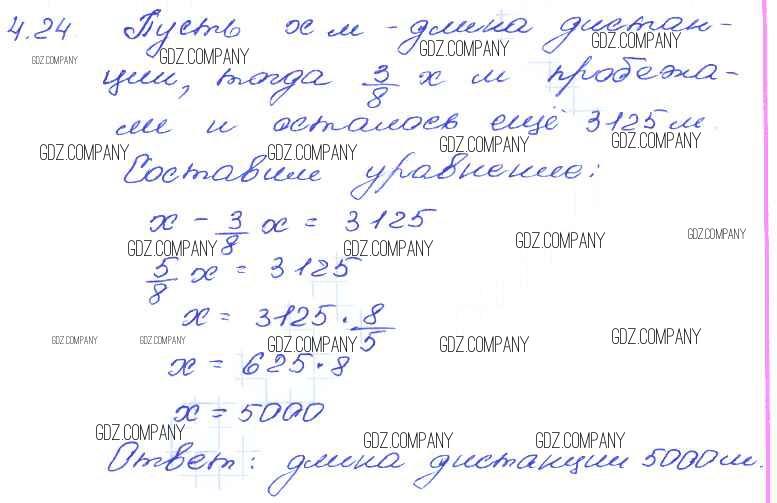 4.24. Пусть x м - длина дистан-
GDZ.COMPANY GDZ.COMPANY GDZ.COMPANY GDZ.COMPANY
ции, тогда 3/8 x м пробежа-
ли и осталось ещё 3125 м.
GDZ.COMPANY GDZ.COMPANY GDZ.COMPANY GDZ.COMPANY
Составим уравнение:
x - 3/8 x = 3125
GDZ.COMPANY GDZ.COMPANY GDZ.COMPANY GDZ.COMPANY
5/8 x = 3125
x = 3125 · 8/5
GDZ.COMPANY GDZ.COMPANY GDZ.COMPANY GDZ.COMPANY GDZ.COMPANY
x = 625 · 8
x = 5000
GDZ.COMPANY GDZ.COMPANY GDZ.COMPANY
Ответ: длина дистанции 5000 м.